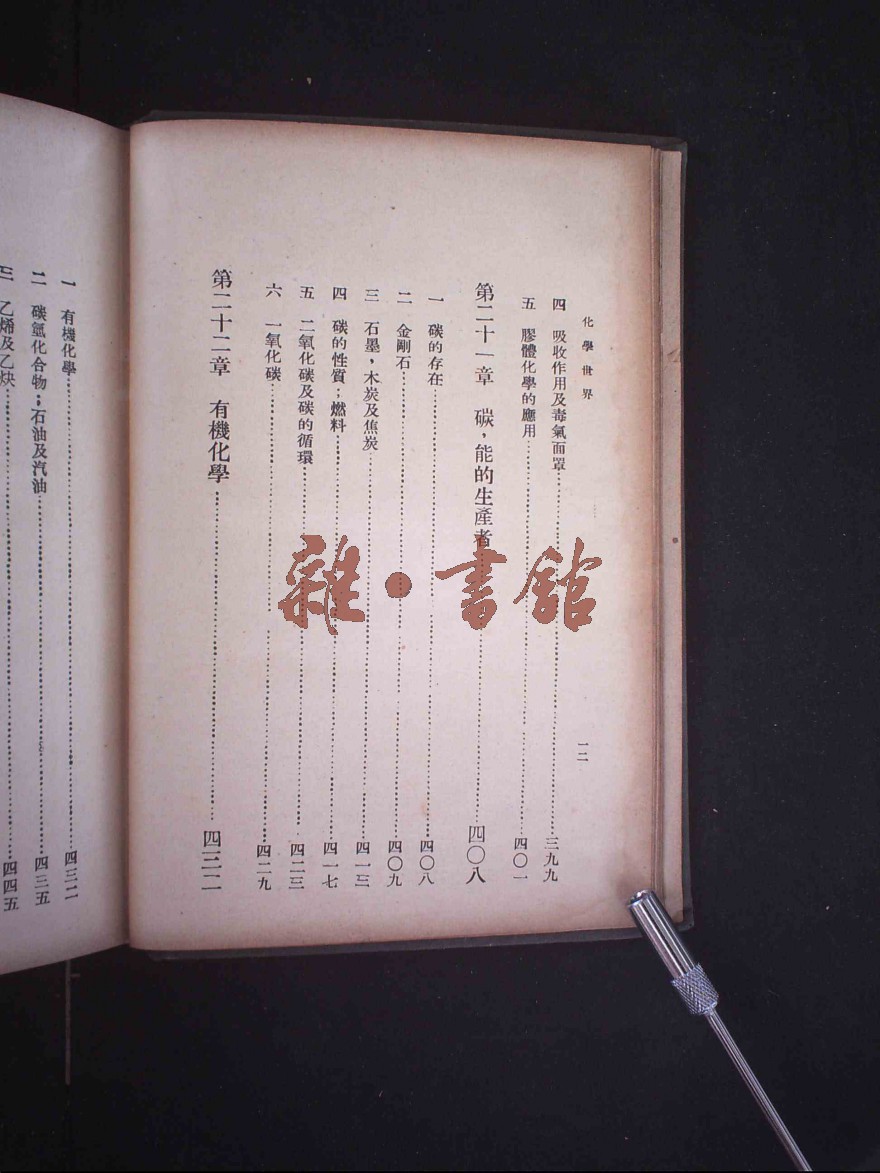 化學世界
一二
四 吸收作用及毒氣面罩 三九九
五 膠體化學的應用 四〇一
第二十一章 碳，能的生產者 四〇八
一 碳的存在 四〇八
二 金剛石 四〇九
三 石墨，木炭及焦炭 四一三
四 碳的性質；燃料 四一七
五 二氧化碳及碳的循環 四二三
六 一氧化碳 四二九
第二十二章 有機化學 四三二
一 有機化學 四三二
二 碳氫化合物：石油及汽油 四三五
三 乙烯及乙炔 四四五
雜·書館